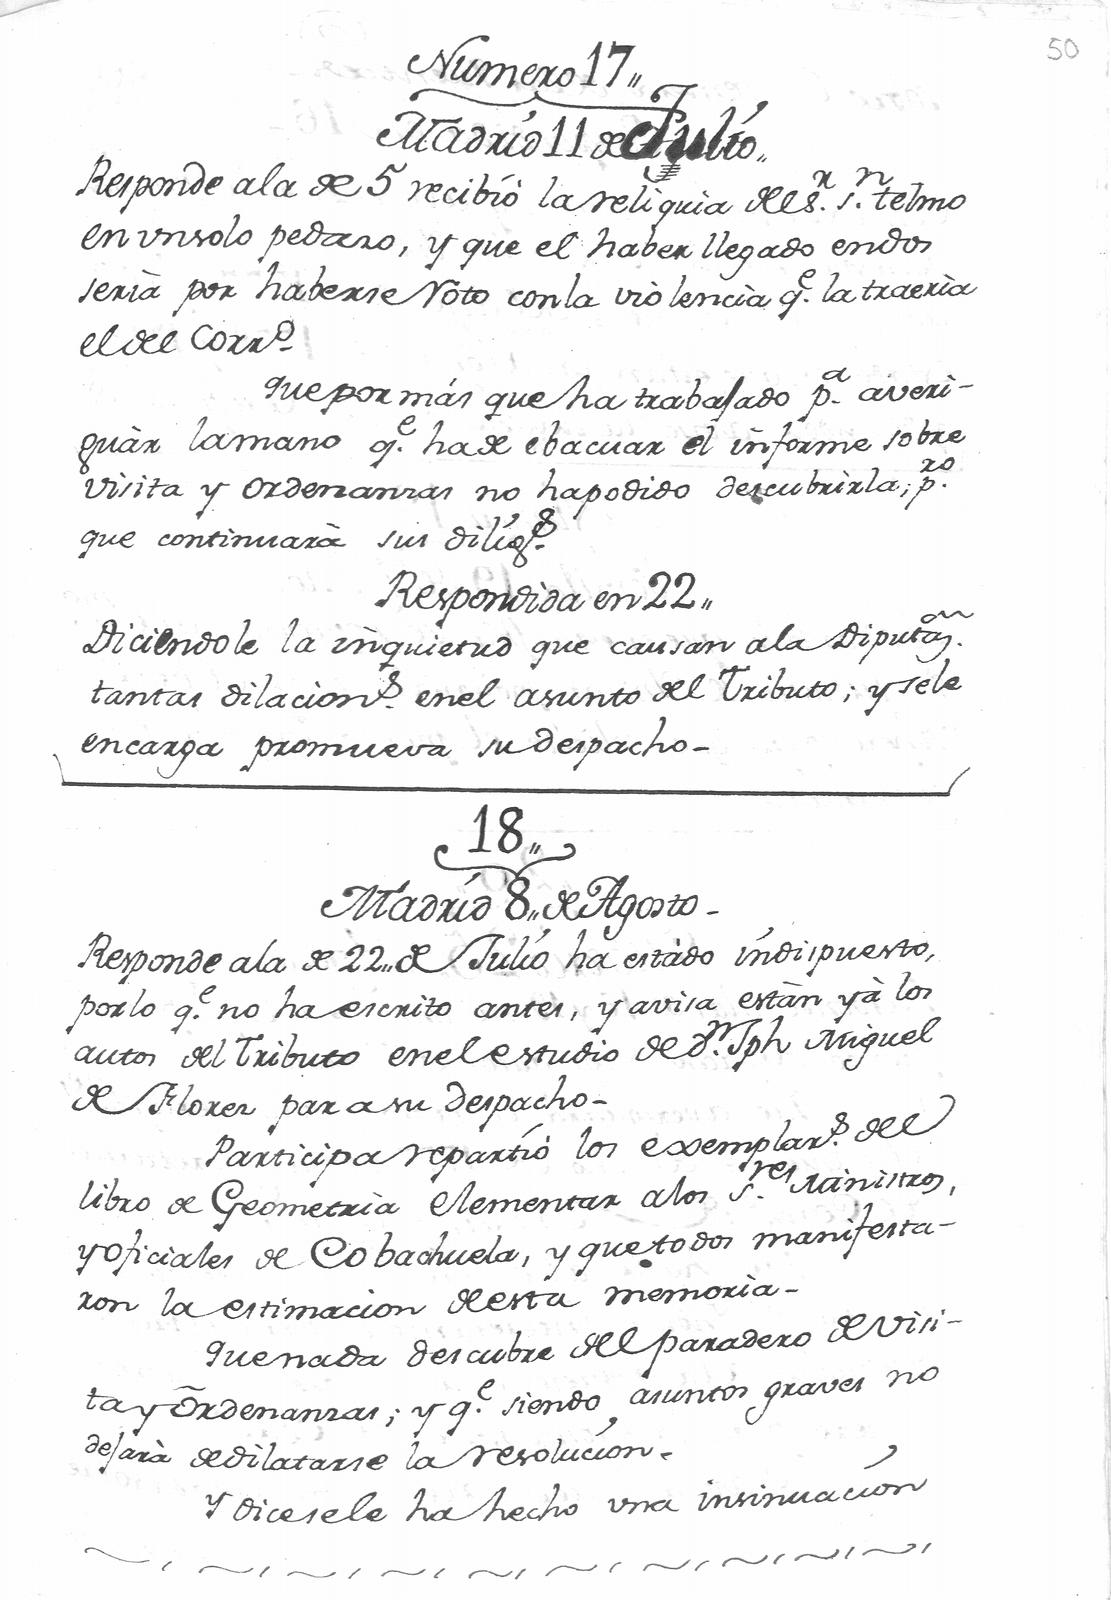 50
Numero 17,,
Madrid 11 de Julio,,
Responde ala de 5 recibió la reliquia del Sr. Sn. telmo
en unsolo pedazo, y que el haber llegado endos
serià por haberse roto conla violencia qe. la traerìa
el del Corro.
Que por más que ha trabajado pa. averi-
guàr lamano qe. hade ebacuar el informe sobre
visita y Ordenanzas no hapodido descubrirla; pro.
que continuarà sus diligs.
Respondida en 22,,
Diciendole la inquietud que causan ala Diputaon.
tantas dilacions. enel asunto del Tributo; y sele
encarga promueva su despacho-
18,,
Madrid 8,, de Agosto-
Responde ala de 22,, de Julio ha estàdo indispuesto,
porlo qe. no ha escrito antes, y avisa estàn yà los
autos del Tributo enel estudio de Dn. Jph Miguel
de Florez para su despacho-
Participa repartió los exemplars. del
libro de Geometrìa Elementar alos Sres. Ministros,
y oficiales de Cobachuela, y que todos manifesta-
ron la estimacion desta memoria-
Que nada descubre del paradero de visi-
ta y Ordenanzas; y qe. siendo asuntos graves no
dejarà de dilatarse la resolución-
Y dicesele ha hecho una insinuación